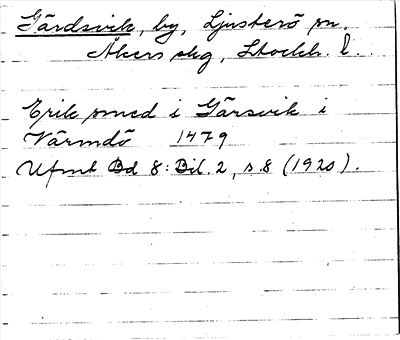 Gärdsvik, by, Ljusterö sn.
Åkers skg, Stockh. l.
Erik smed i Gärsvik i
Värmdö 1479
Ufmt Bd 8: Bil. 2, s. 8 (1920).